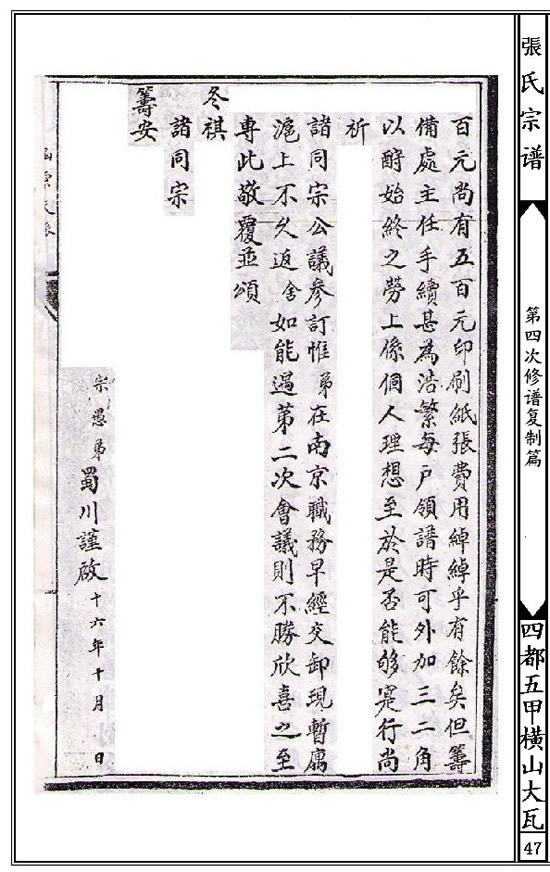 張氏宗谱
第四次修谱复制篇
四都五甲横山大瓦
47
百元尚有五百元印刷紙張費用綽綽乎有餘矣但籌
備處主任手續甚為浩繁每戶領譜時可外加三二角
以酧始終之勞上係個人理想至於是否能够寔行尚
祈
諸同宗公議參訂惟弟在南京職務早經交卸現暫寓
滬上不久返舍如能過第二次會議則不勝欣喜之至
專此敬覆並頌
冬祺
諸同宗
籌安
宗愚弟蜀川謹啟十六年十月 日